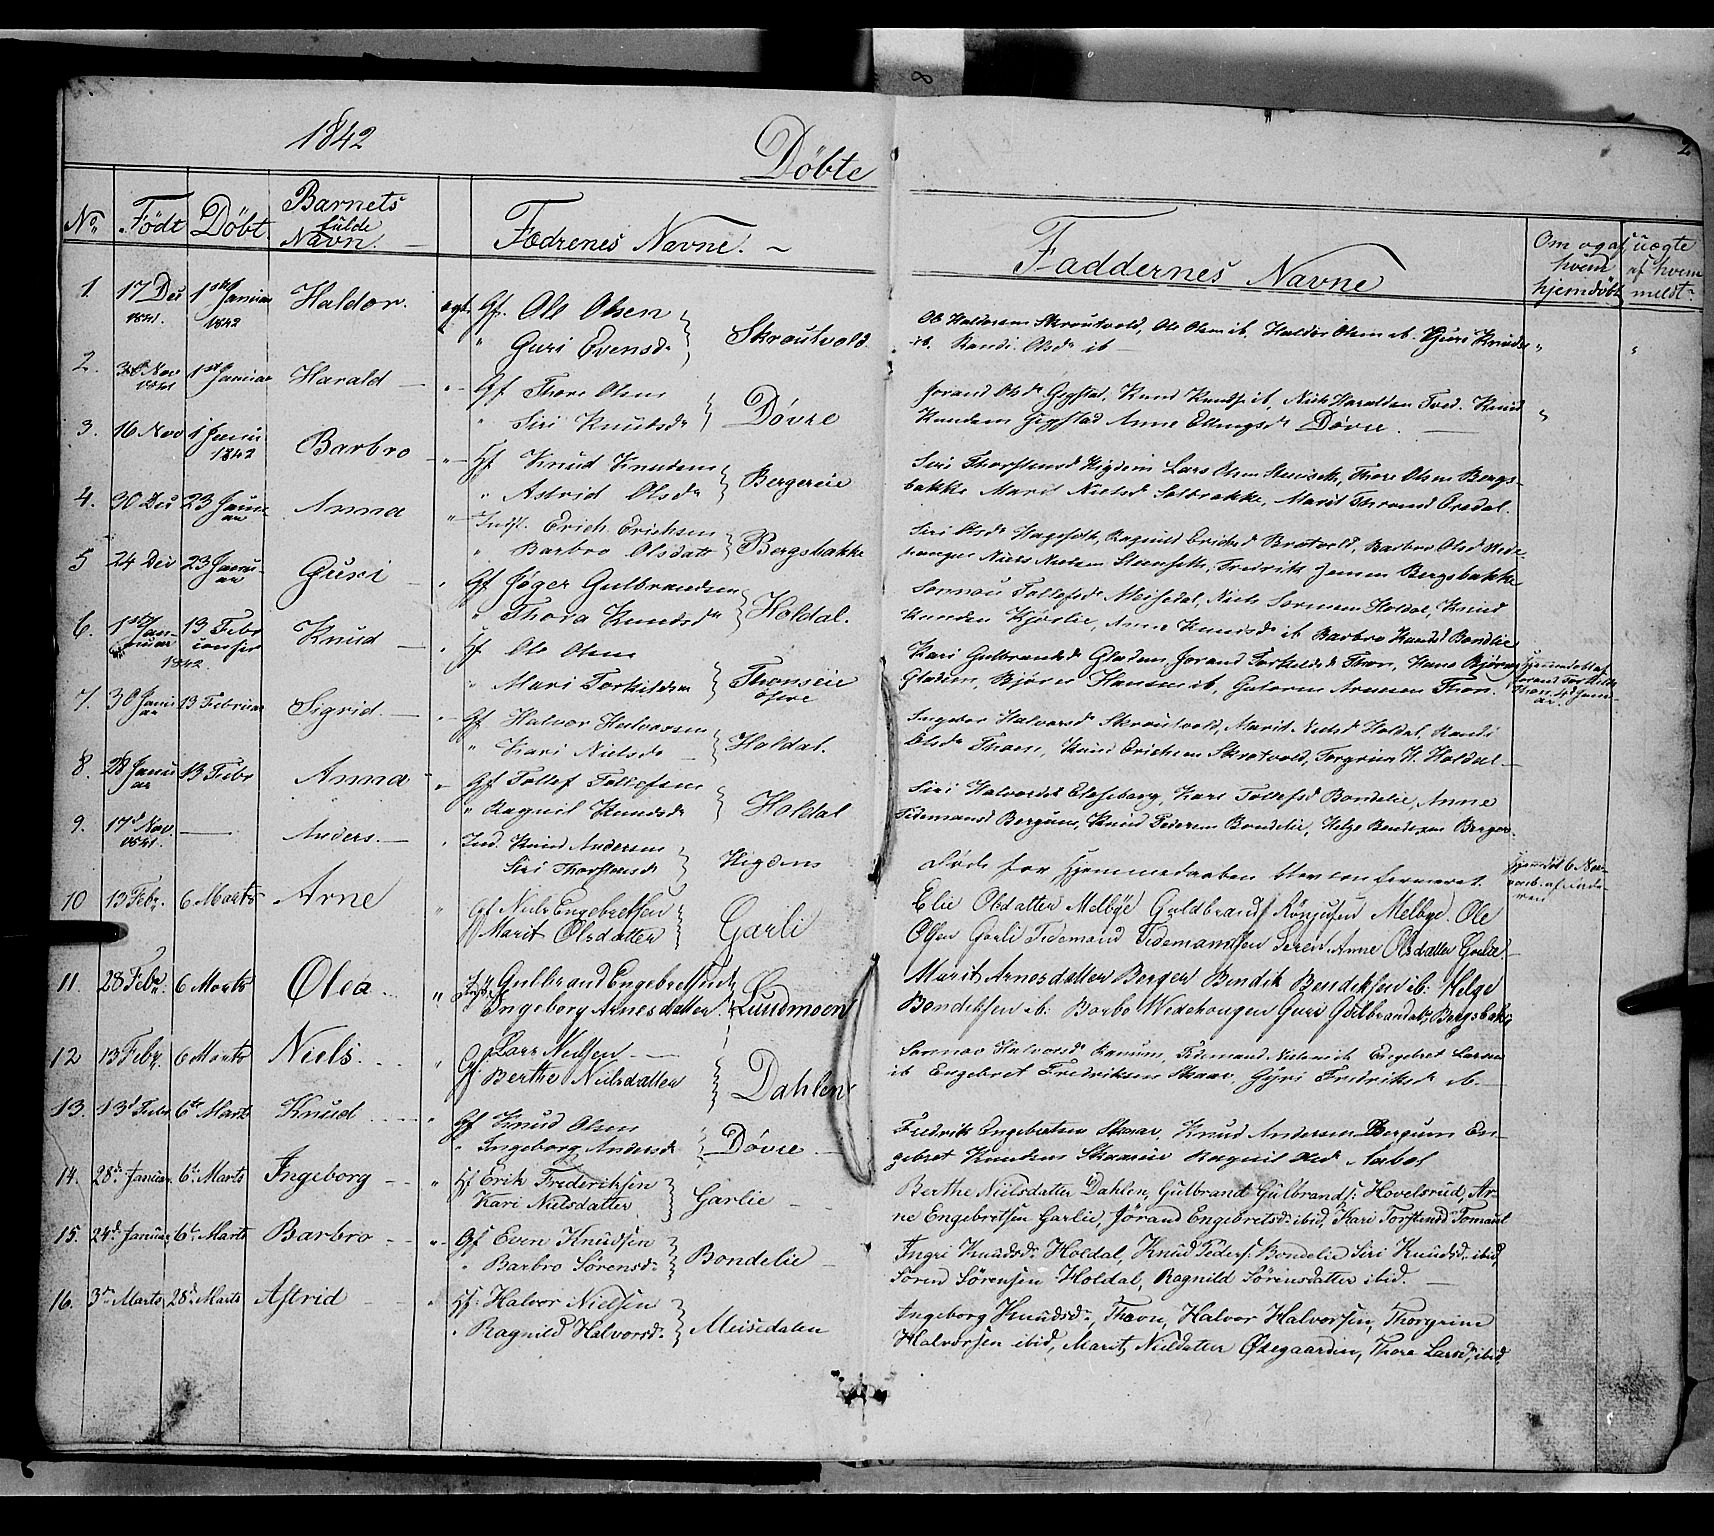 8
2
1842
Døbte
No Født Døbt Barnets fulde Navn Fædrenes Navne. Faddernes Navne Om og af hvem hjemdøbt uægte af hvem meldt
1. 17 Dec 1841. 1ste Januar 1842 Haldor. ægt. Gf. Ole Olsen
" Guri Evensd. Skroutvold
Ole Haldorsen Skroutvold, Ole Olsen ib. Haldor Olsen ib. Guri Knudsd.
ib. Randi Olsd. ib
2. Nov 1841 1ste Januar Harald " Gf Thore Olsen
" Siri Knudsd. Døvre
Jorand Olsd. Knud ib, Niels Haraldsen Knud
Knudsen Anne Døvre.
3. 16 Nov 1 Janu. 1842 Barbro " Hf Knud Knudsen
" Astrid Olsd. Bergereie
Siri Thorstensd Higdem Lars Olsen Thore Olsen Bergs-
bakke Marit Nielsd Solbrække, Marit
4. 30 Dec 23 Januar Anna " Indst. Erich Erichsen
" Barbro Olsdatt Bergsbakke
Siri Olsd Ragnild Erichsd Brotvold, Barbro Olsd Wede-
hougen Niels Nielsen Steenseth, Fredrik Jensen Bergsbakke
5 24 Dec 23 Januar Guri " Gf Jøger Gulbrandsen
" Thora Knudsd. Holdal.
Sønnau Tollefsd Meisedal, Niels Sørensen Holdal, Knud
Knudsen Kjørlie, Anne Knudsd ib Barbro Knudsd Bondelie
6. 1ste Januar 1842 13 Febr confir Knud " Hf Ole Olsen
" Mari Torkildsd Thonseie øfre
Kari Gulbrandsd Gladem, Jorand Torkildsd Thon, Hans Bjørns
Gladem, Bjørn Hansen ib, Gutorm Arnesen Thon.
Hjemdøbt af Jorand Torkildsd Thon 4d Januar.
7. 30 Januar 13 Februar Sigrid. " Gf Halvor Halvorsen
" Kari Nielsd. Holdal.
Ingebor Halvorsd Skroutvold, Marit Nielsd Holdal, Randi
Olsd. Thon, Knud Erichsen Skrotvold, Torgrim H. Holdal
8. 28 Januar 13 Febr Anna " Gf Tollef Tollefsen
" Ragnil Knudsd. Holdal
Siri Halvorsd Kari Tollefsd Bondelie, Anne
Tidemansd Bergum, Knud Pedersen Bondelie, Helge Bendixen Berger
9. 17d Nov. 1841. — Anders. " Ind. Knud Andersen
Siri Thorstensd. Higdens
Døde før Hjemmedaaben blev confirmeret.
Hjemdøbt 6 Nov
10 13 Febr. 6 Marts Arne " Gf Niels Engebretsen
Marit Olsdatter Garli
Elie Olsdatter Melbye Guldbrand Rönjusen Melbye. Ole
Olsen Garli Tidemand Tidemandsen Anne Olsdatter Garlie.
11. 28 Febr. 6 Marts Olea " Indst. Gulbrand Engebretsen
Ingeborg Arnesdatter Lundmoen
Marit Arnesdatter Berger Bendik Bendiksen ib: Helge
Bendiksen ib. Barbo Wedehougen Guri Gulbrandsd, Bergsbakke
12 13 Febr. 6 Marts Niels. " Gf Lars Nielsen
Berthe Nielsdatter Dahlen
Sønnov Halvorsd Ranum, Tidemand Engebret Larsen
ib Engebret Fredriksen Skaar, Gyri Fredriksd. ib.
13. 13d Febr 6te Marts Knud " Gf Knud Olsen
" Ingeborg Andersd. Døvre
Fredrik Engebretsen Skaar, Knud Andersen Bergum En-
gebret Knudsen Skaareie Ragnil Aabøl
14. 28de Januar 6te Marts Ingeborg " Hf Erik Frederiksen
Kari Nielsdatter Garlie
Berthe Nielsdatter Dahlen, Gulbrand Gulbrands: Hovelsrud, Ar-
ne Engebretsen Garlie, Jørand Engebretsd: ibid, Kari Torstensd Tomasl
15. 24d. Januar 6te Marts Barbro " Gf Even Knudsen
" Barbro Sörensd. Bondelie
Ingri Knudsd. Holdal, Knud Peders: Bondelie Siri Knudsd. ibid,
Sören Sörensen Holdal, Ragnild Sörensdatter ibid.
16. 3die Marts 28de Marts Astrid " Hf: Halvor Nielsen
" Ragnild Halvorsd. Meisedalen
Ingeborg Knudsd. Thon, Halvor Halvorsen, Thorgrim
Halvorsen ibid, Marit Nielsdatter Østegaarden, Thore Larsd. ibid.